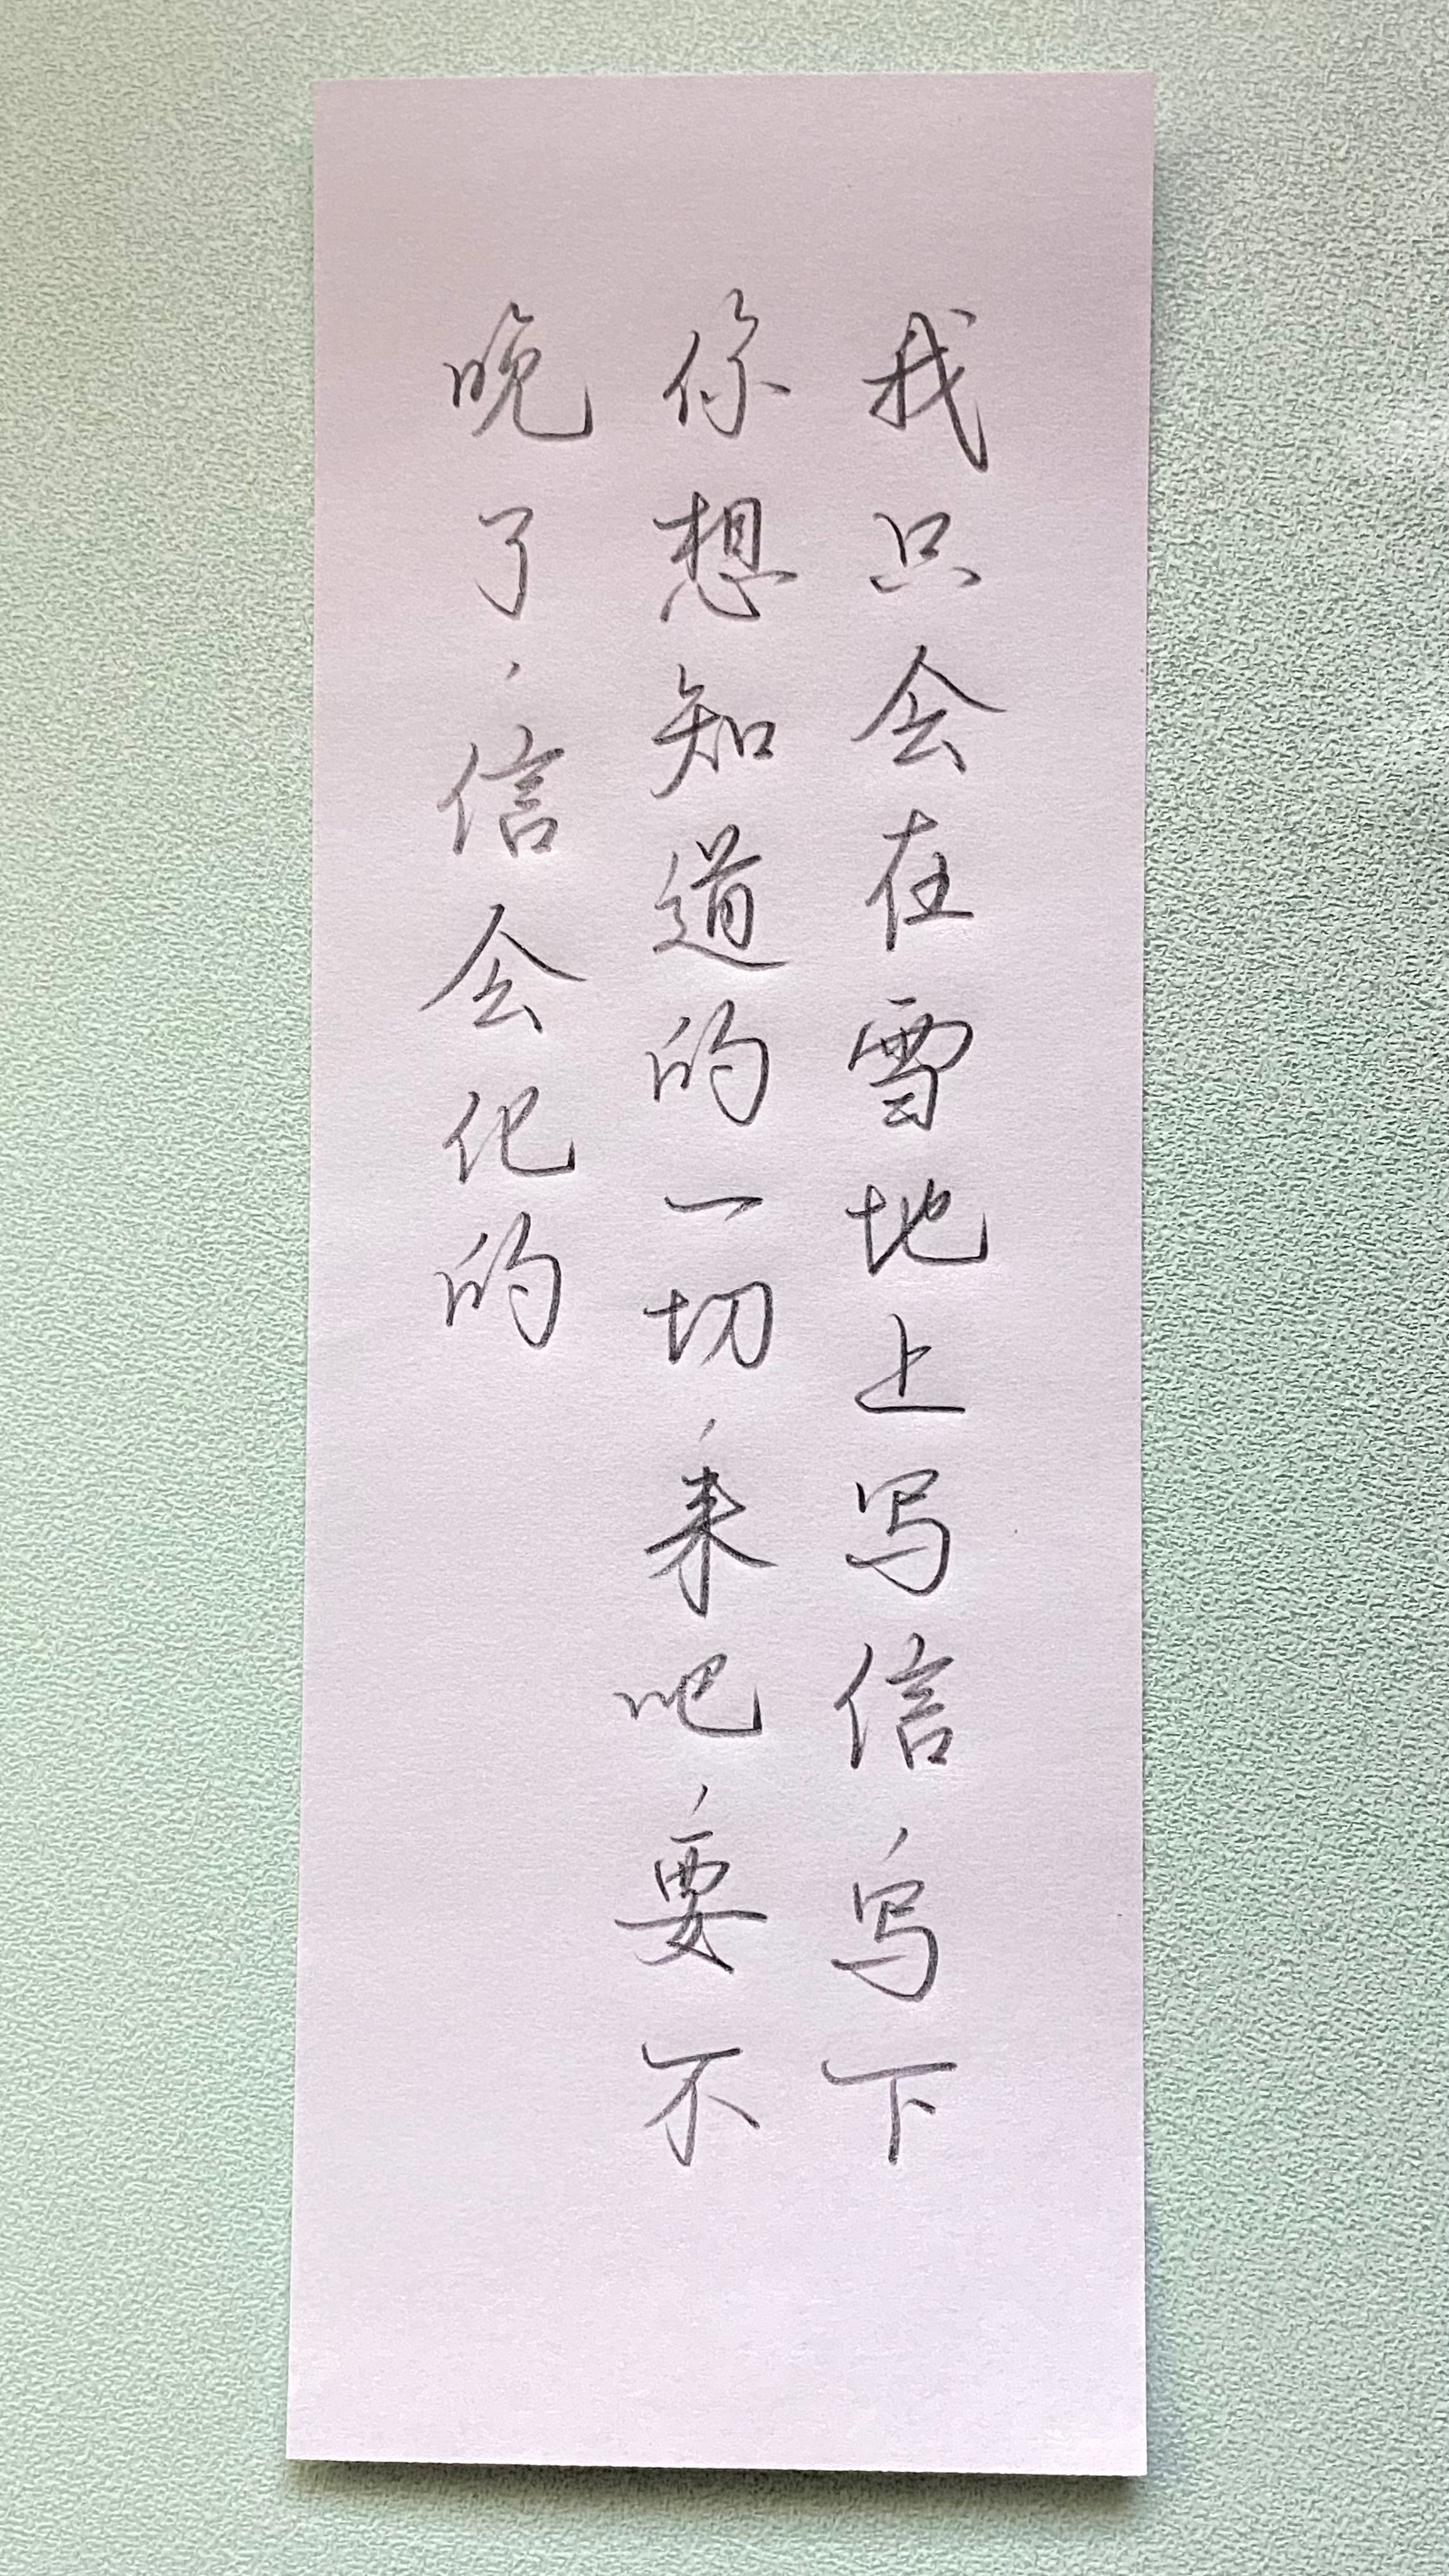 我只会在雪地上写信,写下
你想知道的一切,来吧,要不
晚了,信会化的